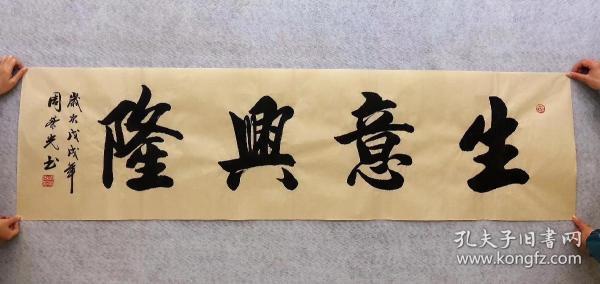 生意興隆
歲次戊戌年
周荣光书
孔夫子旧书网
www.kongfz.com